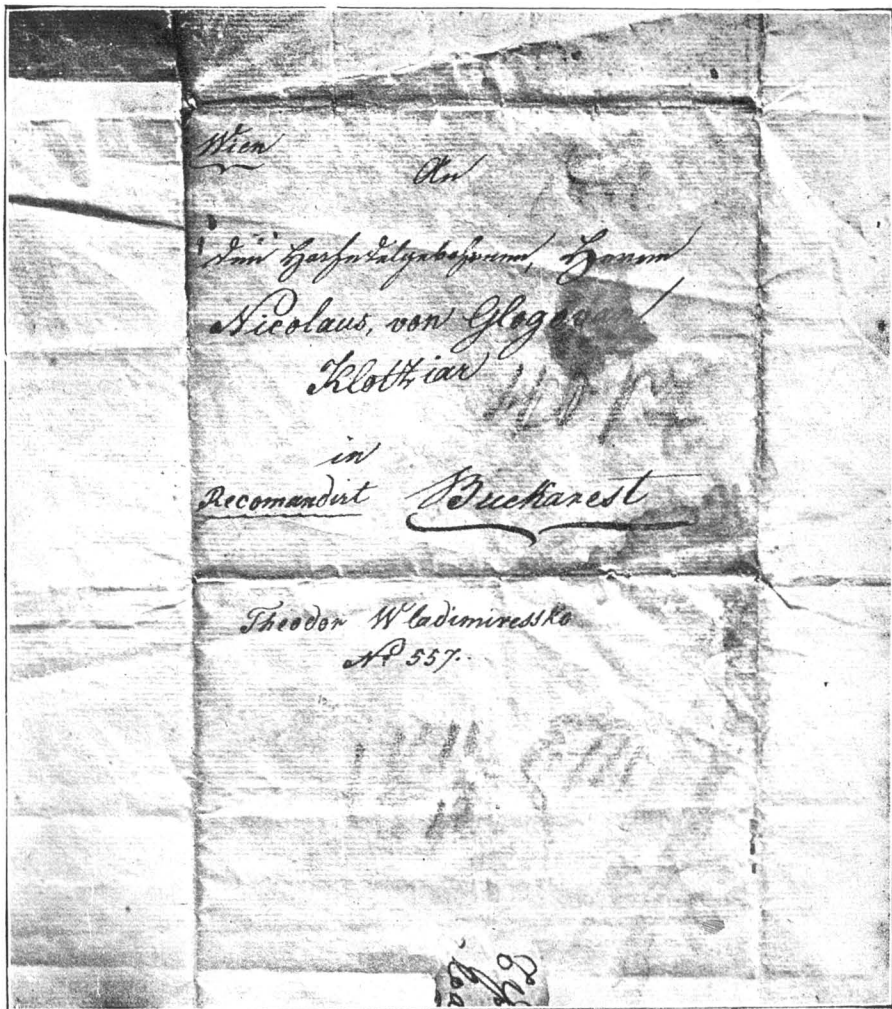 Wien
An
den Hochedelgebohrnen, Herrn
Nicolaus, von Glogovan
Klotziar
in
Recomandirt Buckarest
Theodor Wladimiressko
No 557.